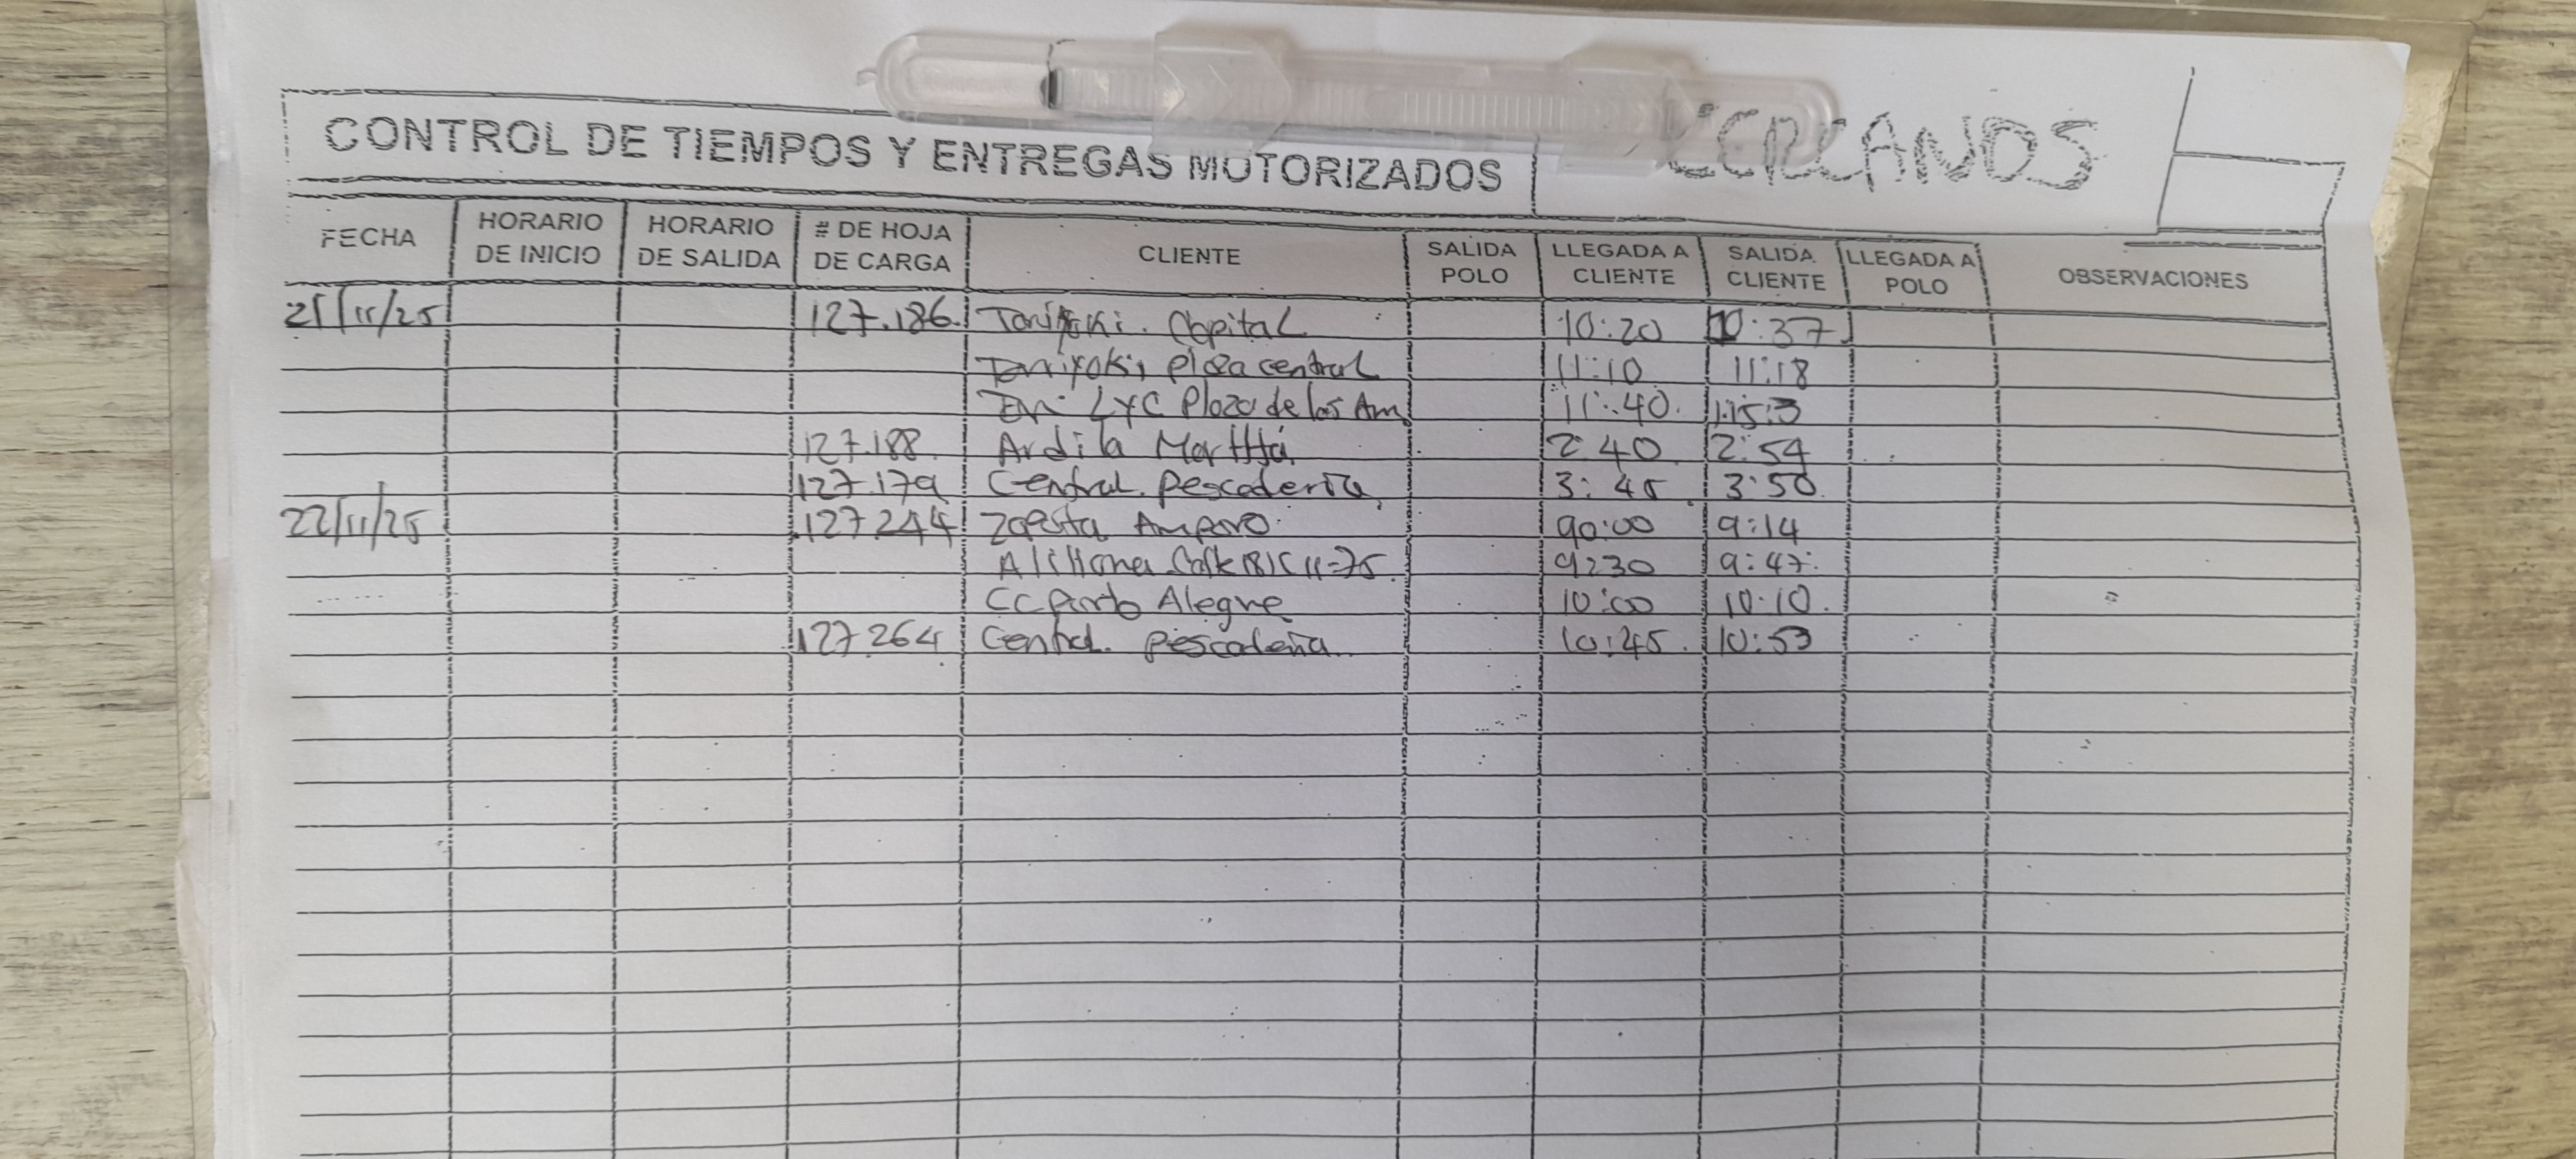 CONTROL DE TIEMPOS Y ENTREGAS MOTORIZADOS CERCANOS
FECHA HORARIO DE INICIO HORARIO DE SALIDA # DE HOJA DE CARGA CLIENTE SALIDA POLO LLEGADA A CLIENTE SALIDA CLIENTE LLEGADA A POLO OBSERVACIONES
21/11/25 127.186 Capital 10:20 10:37
plaza central 11:10 11:18
LYC Plaza de las Am 11:40 11:53
127.188 Ardila Martha 2:40 2:54
127.179 Central. pescaderia 3:45 3:50
22/11/25 127.244 Zapata Amparo 90:00 9:14
9:30 9:47
CC Puerto Alegre 10:00 10:10
127.264 Central. pescaderia 10:45 10:53